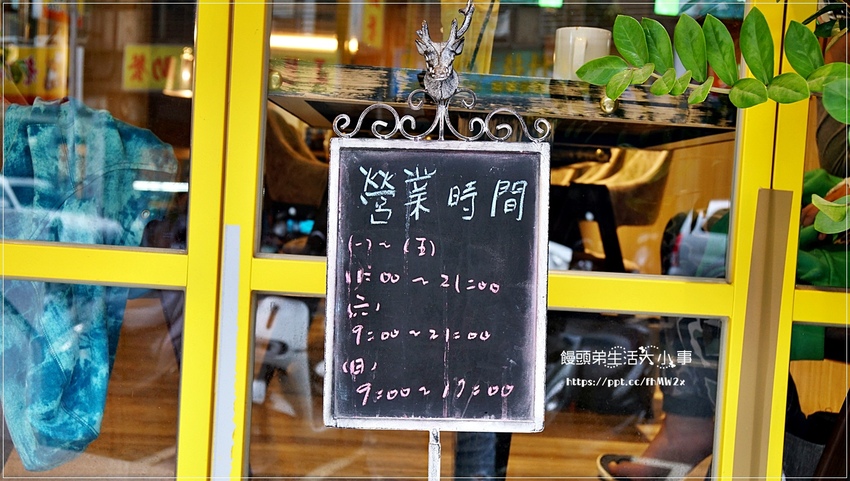 營業時間
(一)~(五)
11:00~21:00
(六)
9:00~21:00
(日)
9:00~17:00
饅頭弟生活大小事
https://ppt.cc/fhMW2x